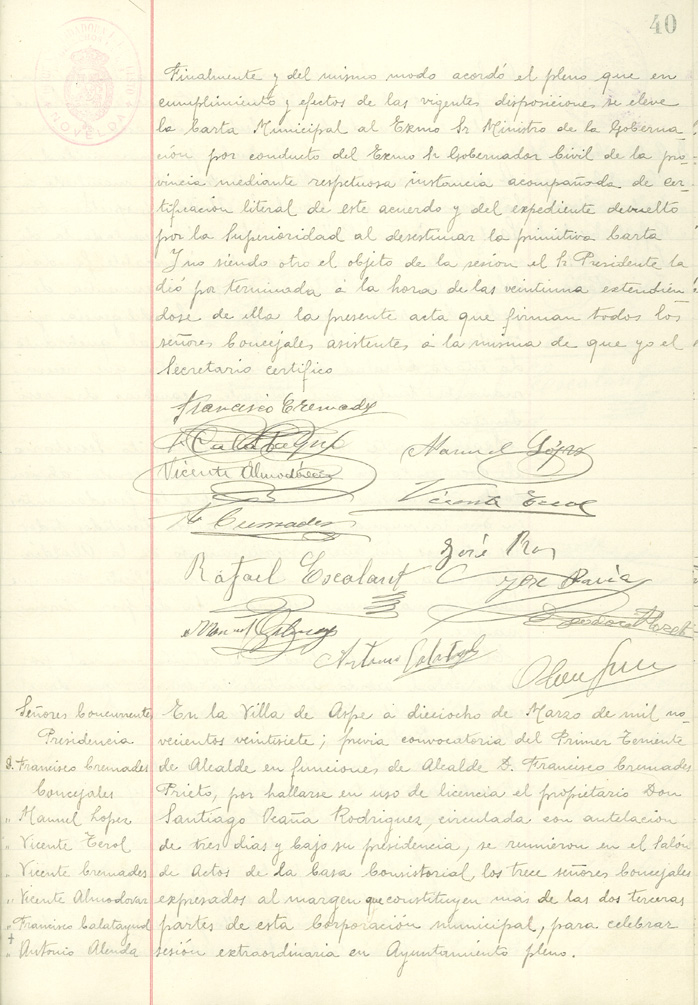 40
NOVELDA
Finalmente y del mismo modo acordó el pleno que en
cumplimiento y efectos de las vigentes disposiciones se eleve
la Carta Municipal al Exmo Sr Ministro de la Goberna-
ción por conducto del Exmo Sr Gobernador Civil de la pro-
vincia mediante respetuosa instancia acompañada de cer-
tificación literal de este acuerdo y del expediente devuelto
por la Superioridad al desestimar la primitiva Carta
Y no siendo otro el objeto de la sesión el Sr Presidente la
dió por terminada á la hora de las veintiuna extendien
dose de ella la presente acta que firman todos los
señores Concejales asistentes á la misma de que yo el
Secretario certifico
Francisco Cremades
Fco Calatayud
Manuel López
Vicente Almodóvar
Vicente Terol
Vte Cremades
José Ros
Rafael Escolano
José Pavía
Manuel
Arturo Calatayud
Señores Concurrentes
Presidencia
D. Francisco Cremades
Concejales
" Manuel Lopez
" Vicente Terol
" Vicente Cremades
" Vicente Almodovar
" Francisco Calatayud
" Antonio Alenda
En la Villa de Aspe á dieciocho de Marzo de mil no-
vecientos veintisiete; previa convocatoria del Primer Teniente
de Alcalde en funciones de Alcalde D. Francisco Cremades
Prieto, por hallarse en uso de licencia el propietario Don
Santiago Ocaña Rodriguez, circulada con antelación
de tres dias y bajo su presidencia, se reunieron en el Salón
de Actos de la Casa Consistorial los trece señores Concejales
expresados al margen que constituyen más de las dos terceras
partes de esta Corporación municipal, para celebrar
sesión extraordinaria en Ayuntamiento pleno.